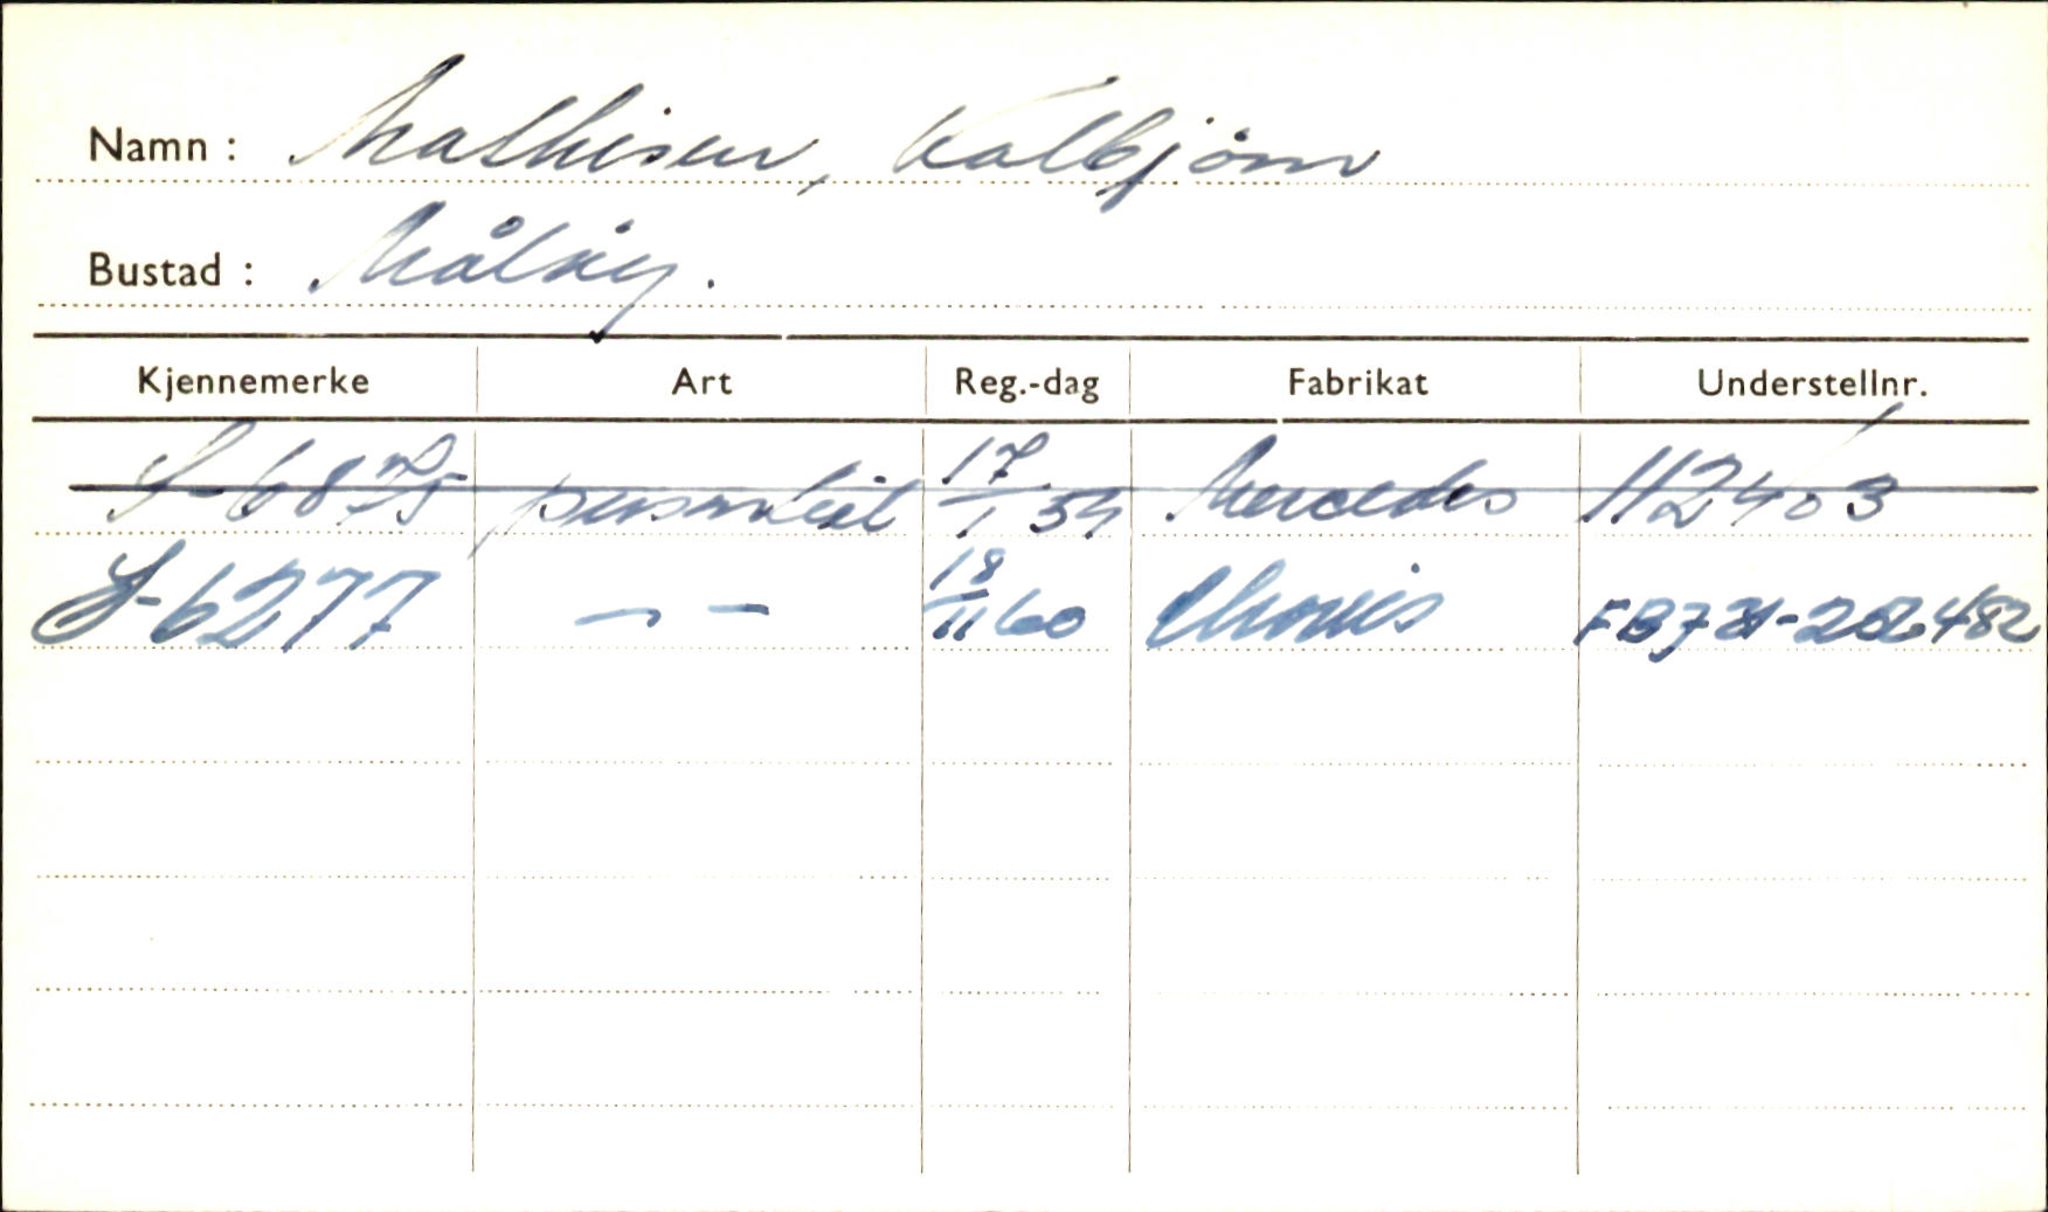 Namn: Mathisen, Kolbjörn
Bustad: Måløy.
Kjennemerke Art Reg.-dag Fabrikat Understellnr.
S-6875 personbil 17/1 59 Mercedes 112403
S-6277 — — 18/11 60 Morris